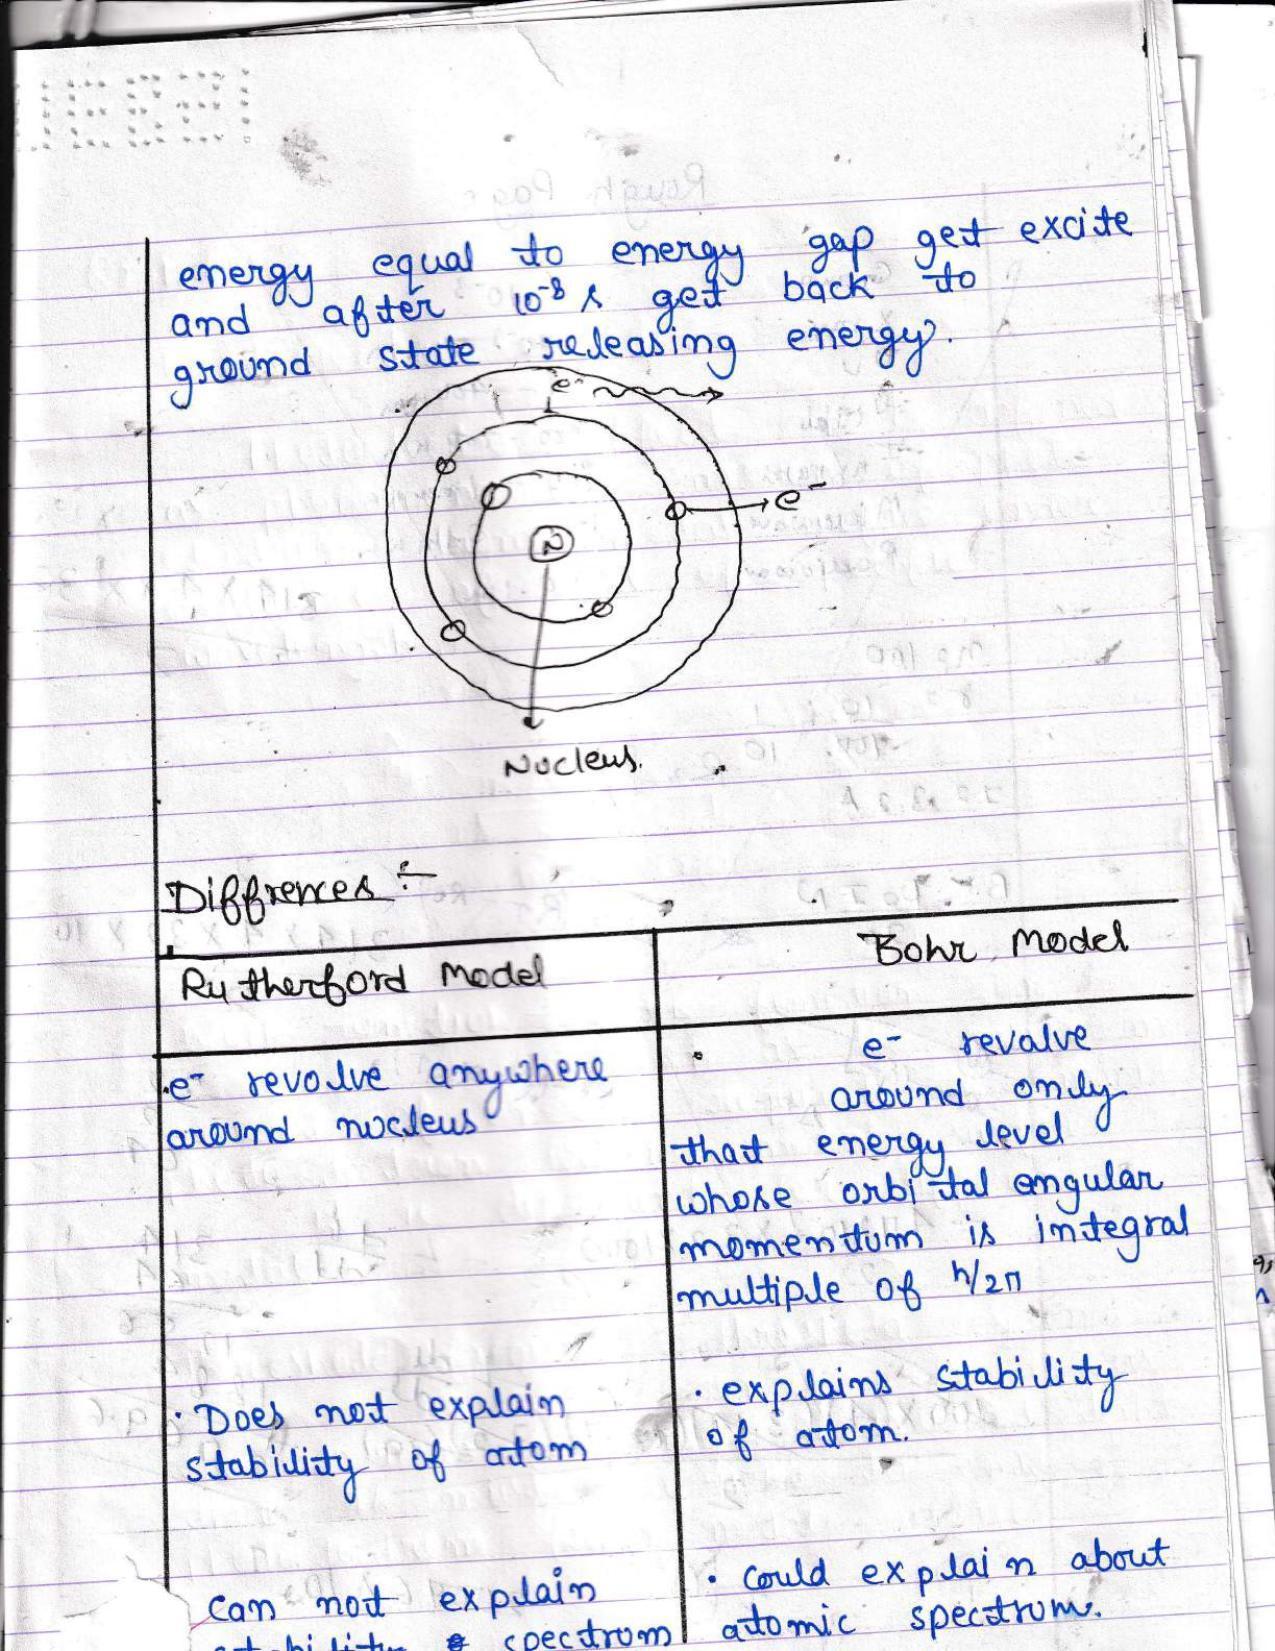 energy equal to energy gap get excite
and after 10⁻⁸ s get back to
ground state releasing energy.
e⁻
e⁻
N
Nucleus.
Diffrences :-
Rutherford Model
Bohr Model
·e⁻ revolve anywhere
around nucleus
· e⁻ revalve
around only
that energy level
whose orbital angular
momentum is integral
multiple of h/2π
· Does not explain
stability of atom
· explains stability
of atom.
can not explain
spectrom
· could explain about
atomic spectrum.